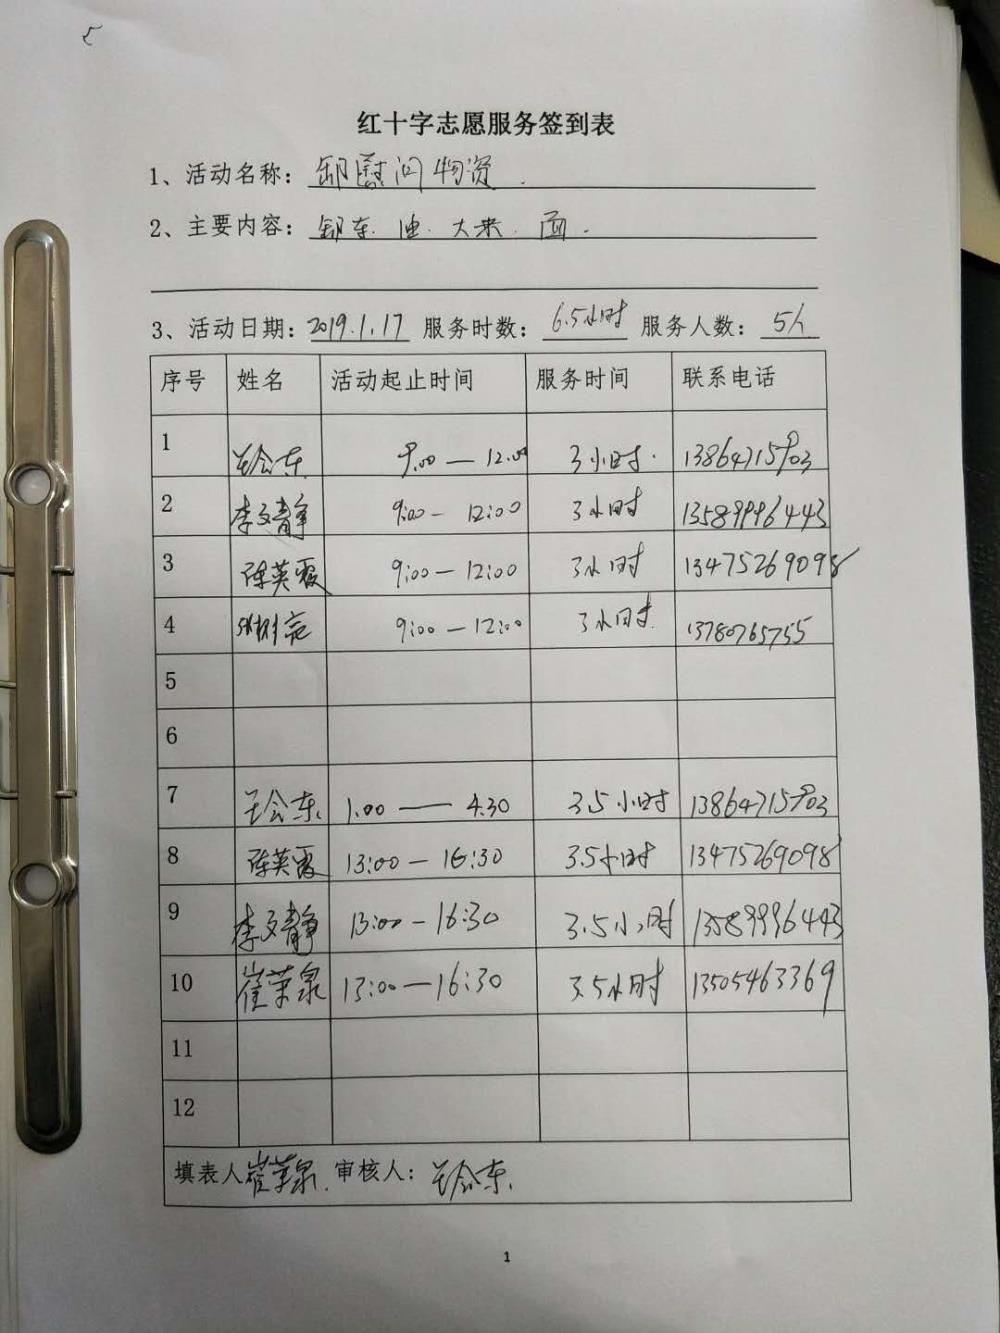 红十字志愿服务签到表
1、活动名称: 卸慰问物资.
2、主要内容: 卸车.油.大米.面.
3、活动日期: 2019.1.17 服务时数: 6.5小时 服务人数: 5人
序号 姓名 活动起止时间 服务时间 联系电话
1 王会东 9.00—12.00 3小时. 13864715903
2 李文静 9:00—12:00 3小时 13589996443
3 陈英霞 9:00—12:00 3小时 13475269098
4 张树亮 9:00—12:00 3小时. 13780765755
5
6
7 王会东. 1.00——4.30 3.5小时 13864715903
8 陈英霞 13:00—16:30 3.5小时 13475269098
9 李文静 13:00-16:30 3.5小时 13589996443
10 崔荣泉 13:00—16:30 3.5小时 13505463369
11
12
填表人崔荣泉. 审核人: 王会东.
1